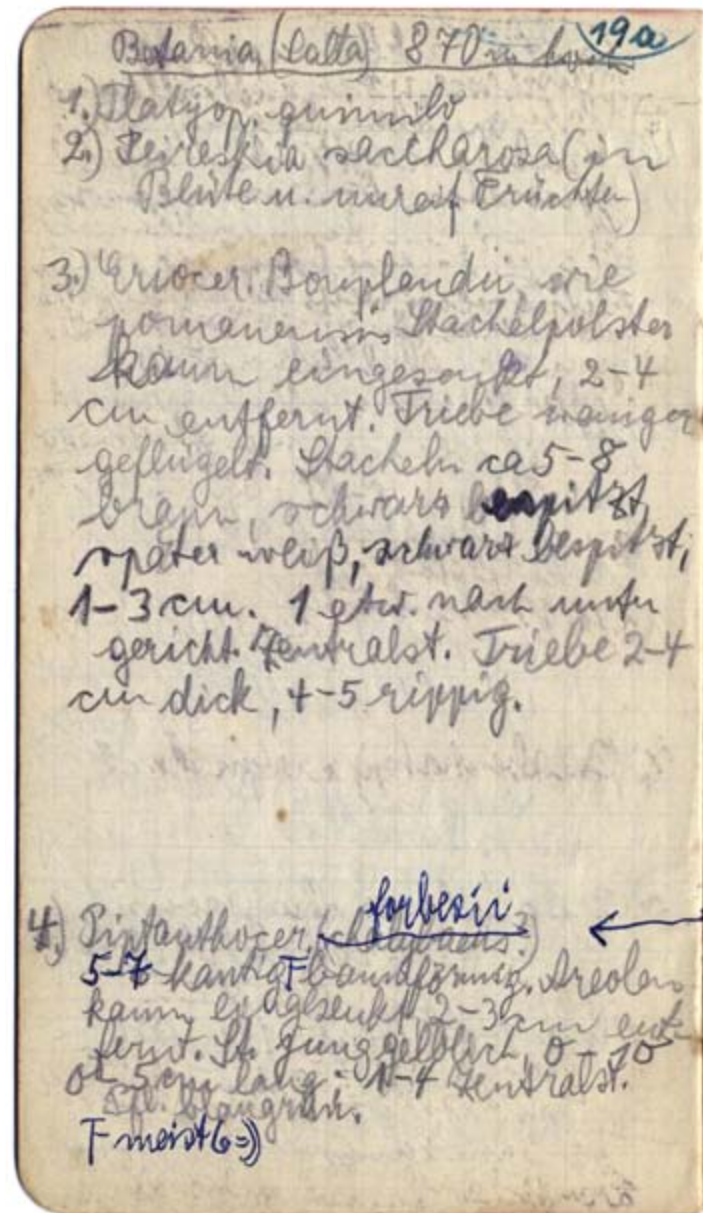 19a
Betania (Salta) 870 m
1.) Platyop. quimilo
2.) Peireskia saccharosa (in
Blüte u. unreif. Früchten)
3.) Eriocer. Bonplandii, wie
pomanensis Stachelpolster
kaum eingesenkt, 2-4
cm entfernt. Triebe weniger
geflügelt. Stacheln ca 5-8
braun, schwarz bespitzt,
später weiß, schwarz bespitzt,
1-3 cm. 1 etw. nach unten
gericht. Zentralst. Triebe 2-4
cm dick, 4-5 rippig.
forbesii
4.) Piptanthocer. (chalybaeus?)
5-7 kantig baumförmig. Areolen
kaum eingesenkt 2-3 cm ent-
fernt. St. jung gelblich, 0-10
0-5 cm lang. 1-4 Zentralst.
blaugrün.
meist 6